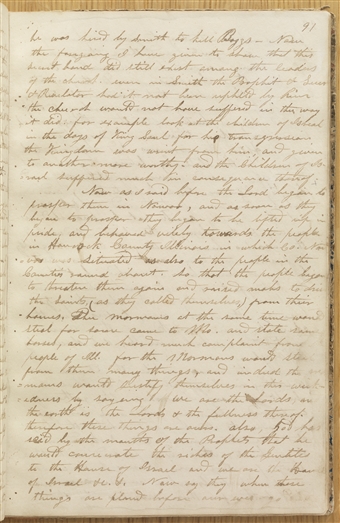 91
he was hired by Smith to kill Boggs — Now
the foregoing I have given to show that this
did still exist among the leaders
of the church even in Smith the Prophet & Seer
& Revelator had it not been upheld by him
the church would not have suffered in the way
it did: for example look at the children of Israel
in the days of King Saul for his transgression
the Kingdom was went from him and given
to another more worthy. and the Children of Is-
rael suffered much in consequence thereof.
Now as I said before the Lord began to
prosper them in Nauvoo, and as soon as they
began to prosper they began to be lifted up in
pride, and behaved rudely towards the people
in Hancock County Illinois, in which Co. Nau-
voo was situated as also to the people in the
Counties round about. So that the people began
to threaten them again and raised mobs to drive
the Saints, (as they called themselves) from their
homes. The mormons at the same time would
steal for some came to Mo. and stole even
horses, and we heard much complaint from
people of Ill. for the Mormons would steal
from them many things, and indeed the
mormons would justify themselves in this
by saying we are the Lords and
the earth is the Lords & the fullness thereof.
therefore these things are ours. also, God has
said by the mouths of the Prophets that he
would consecrate the riches of the Gentiles
to the House of Israel and we are the House
of Israel &c. &. Now say they when these
things are placed before